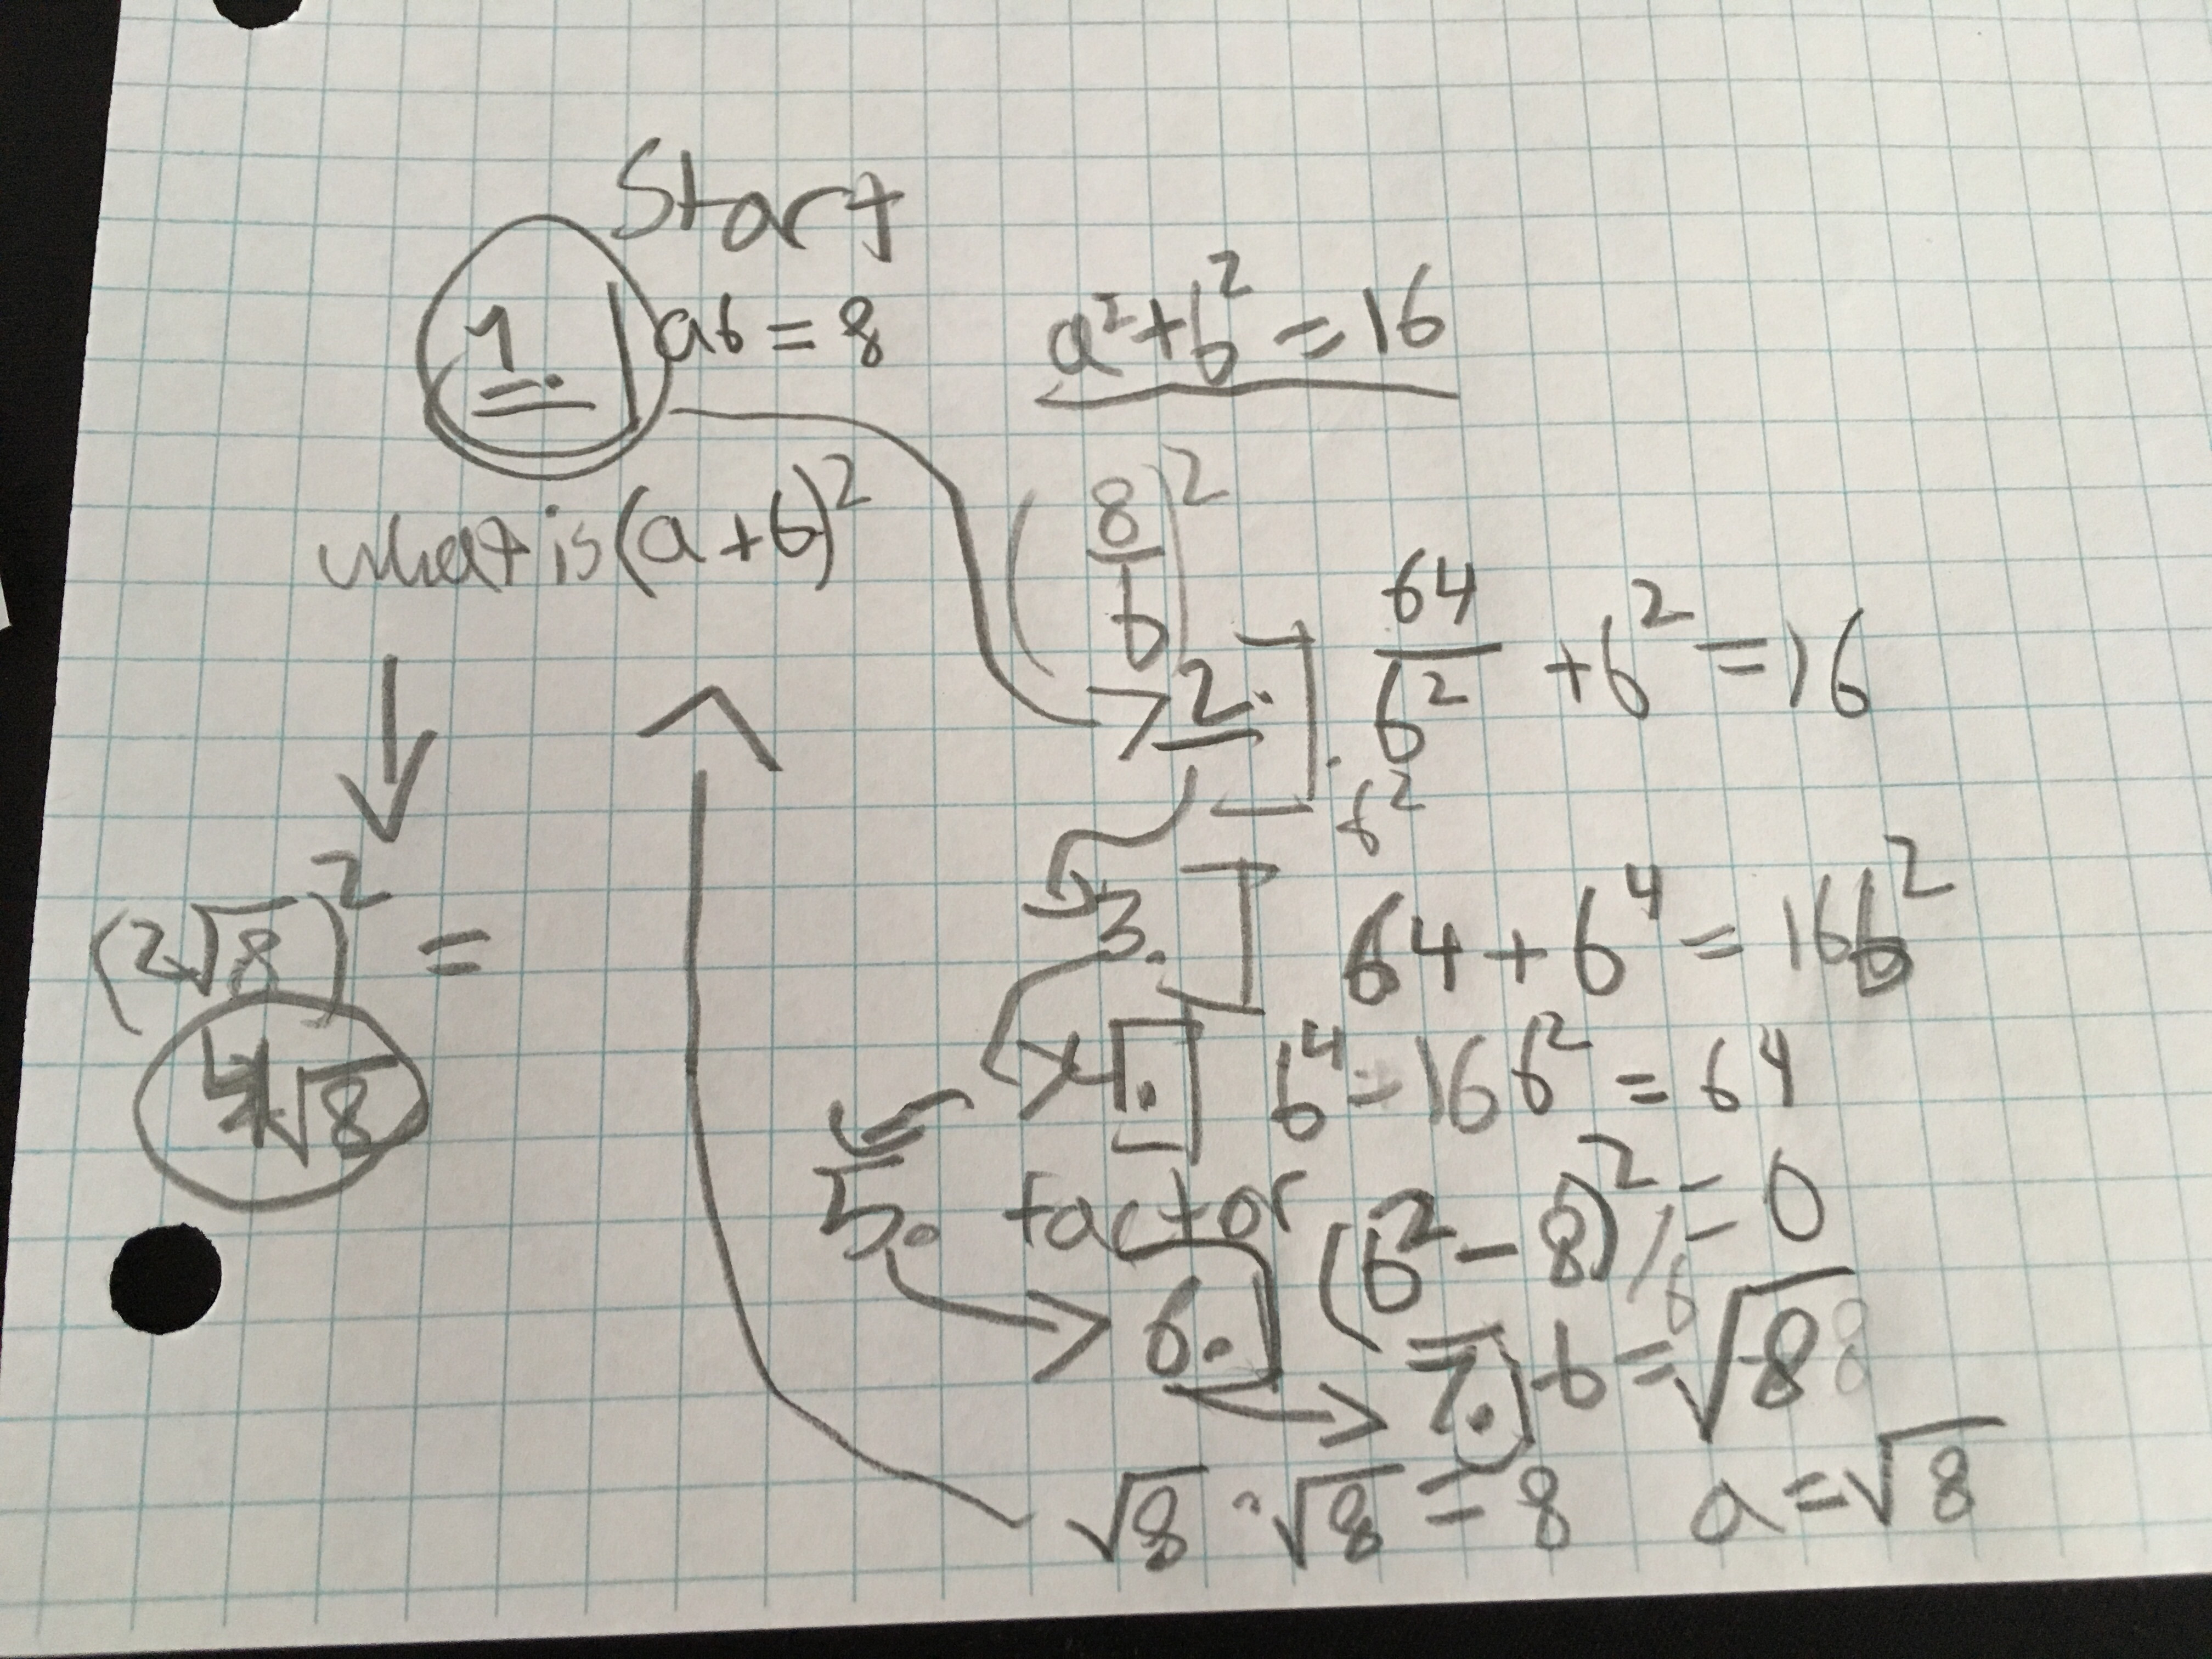 Start
1. ab = 8
a² + b² = 16
what is (a + b)²
(8/b)²
2. 64/b² + b² = 16
· b²
3. 64 + b⁴ = 16b²
4. b⁴ = 16b² = 64
5. factor (b² - 8)² = 0
6.
7. b = √8
√8 · √8 = 8 a = √8
(2√8)² =
4√8